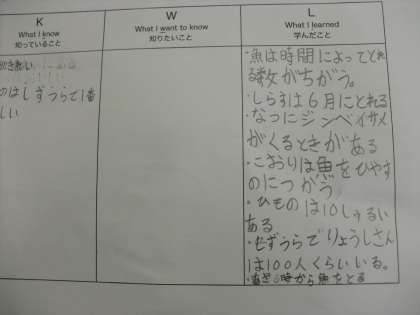 K
What I know
知っていること
はしずうらで1番
しい
W
What I want to know
知りたいこと
L
What I learned
学んだこと
・魚は時間によってとれ
る数がちがう。
・しらすは6月にとれる
・なつにジンベイザメ
がくるときがある
・こおりは魚をひやす
のにつかう
・ひものは10しゅるい
ある
・しずうらでりょうしさん
は100人くらいいる。
・あさ6時から魚をとる